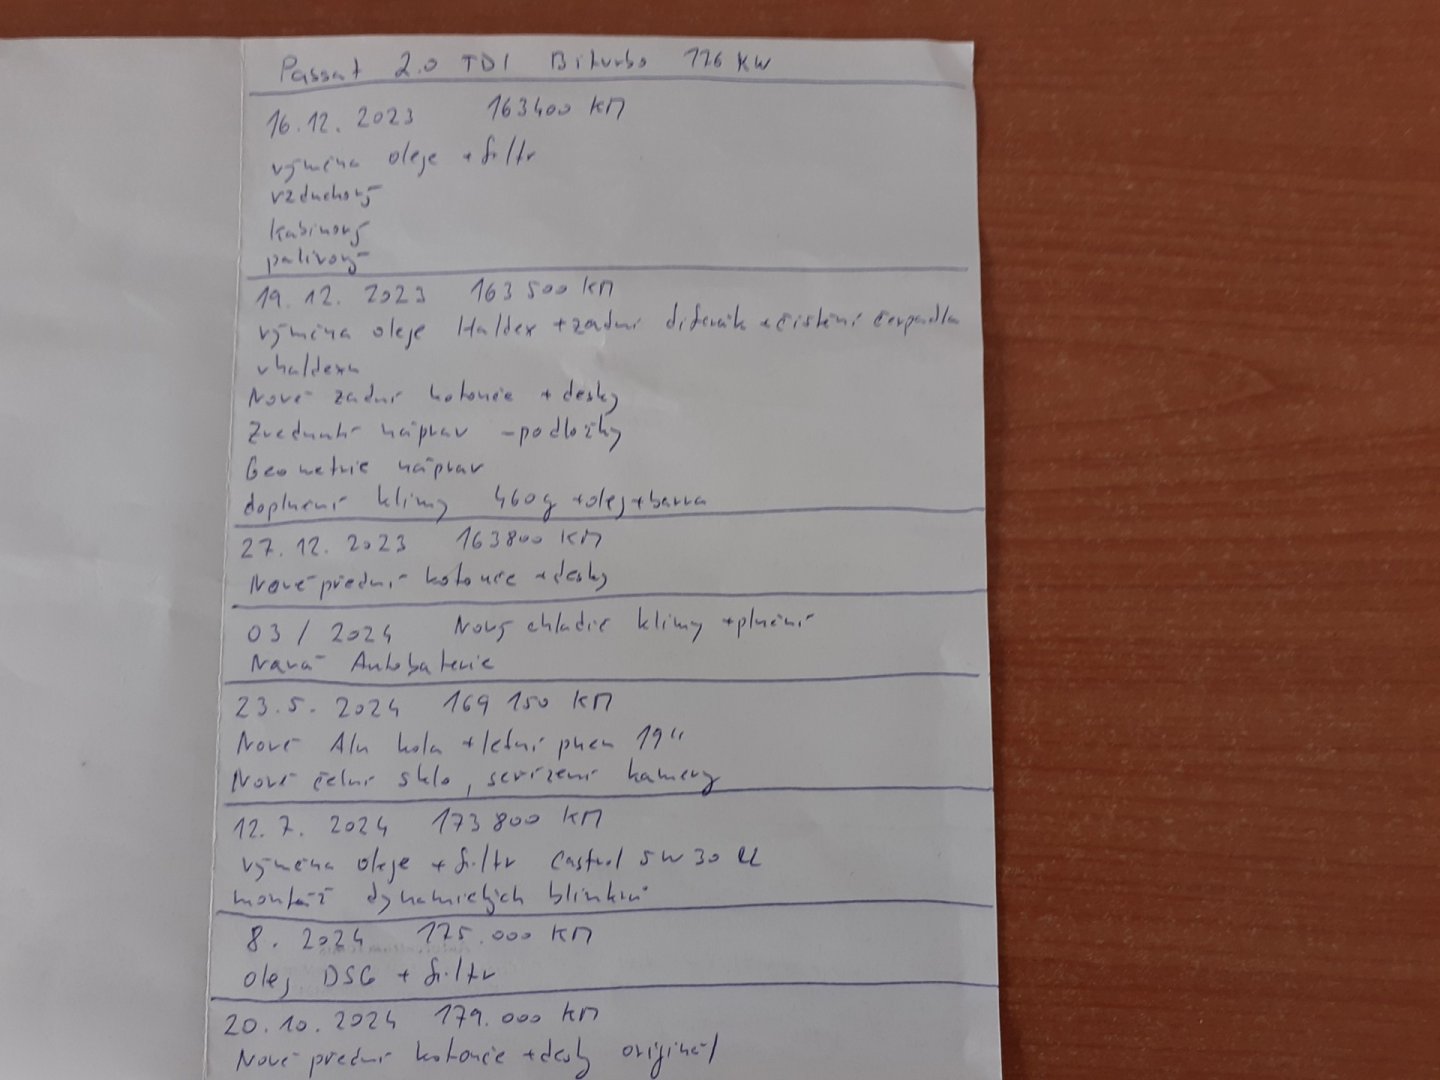 Passat 2.0 TDI Biturbo 176 KW
16.12. 2023 163400 KM
výměna oleje + filtr
vzduchový
kabinový
palivový
19. 12. 2023 163 500 KM
výměna oleje Haldex + zadní diferák + čistění čerpadla
vhaldexu
Nové zadní kotouče + desky
Zvednutí náprav - podložky
Geometrie náprav
doplnění klimy 460g + olej + barva
27. 12. 2023 163800 KM
Nové přední kotouče + desky
03 / 2024 Nový chladič klimy + plnění
Nová Autobaterie
23.5. 2024 169 150 KM
Nové Alu kola + letní pneu 19"
Nové čelní sklo, seřízení kamery
12. 7. 2024 173 800 KM
výměna oleje + filtr Castrol 5W30 LL
montáž dynamických blinkrů
8. 2024 175.000 KM
olej DSG + filtr
20.10.2024 179.000 KM
Nové přední kotouče + desky originál